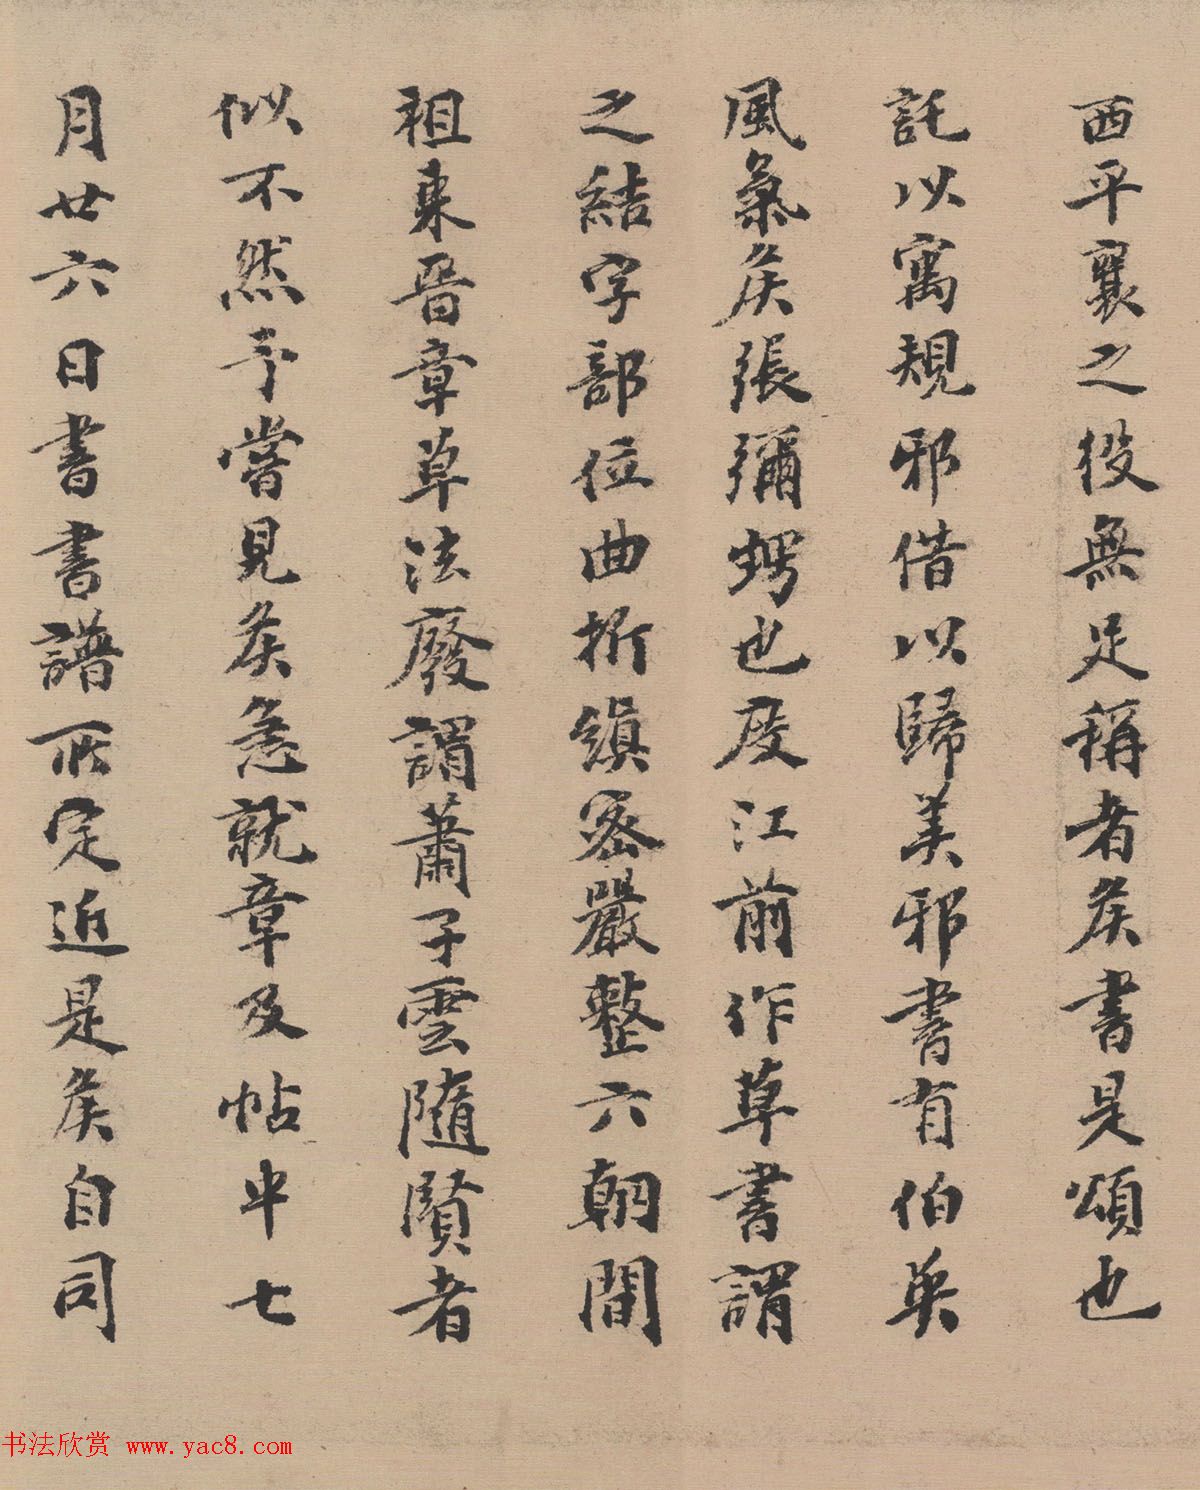 西平襄之役無足稱者矦書是頌也
託以寓規邪借以歸美邪書有伯英
風氣矦張彌愕也段江前作草書謂
之結字部位曲折縝密嚴整六朝間
祖東晉章草法廢謂蕭子雲隨賢者
似不然予嘗見矦急就章及帖中七
月廿六日書書譜所定近是矦自司
书法欣赏 www.yac8.com